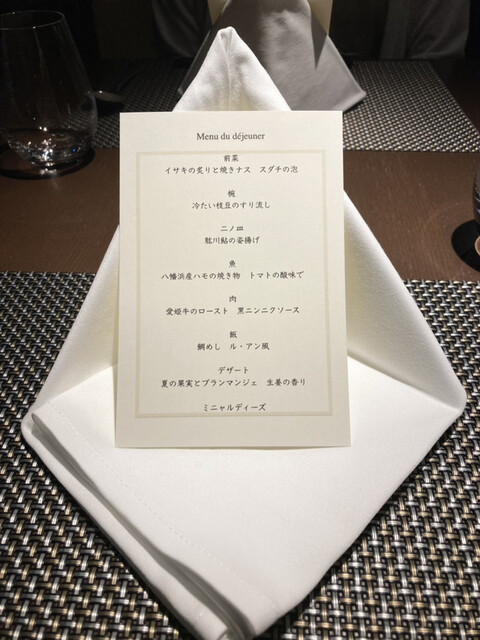 Menu du déjeuner
前菜
イサキの炙りと焼きナス　スダチの泡
椀
冷たい枝豆のすり流し
二ノ皿
肱川鮎の姿揚げ
魚
八幡浜産ハモの焼き物　トマトの酸味で
肉
愛姫牛のロースト　黒ニンニクソース
飯
鯛めし　ル・アン風
デザート
夏の果実とブランマンジェ　生姜の香り
ミニャルディーズ